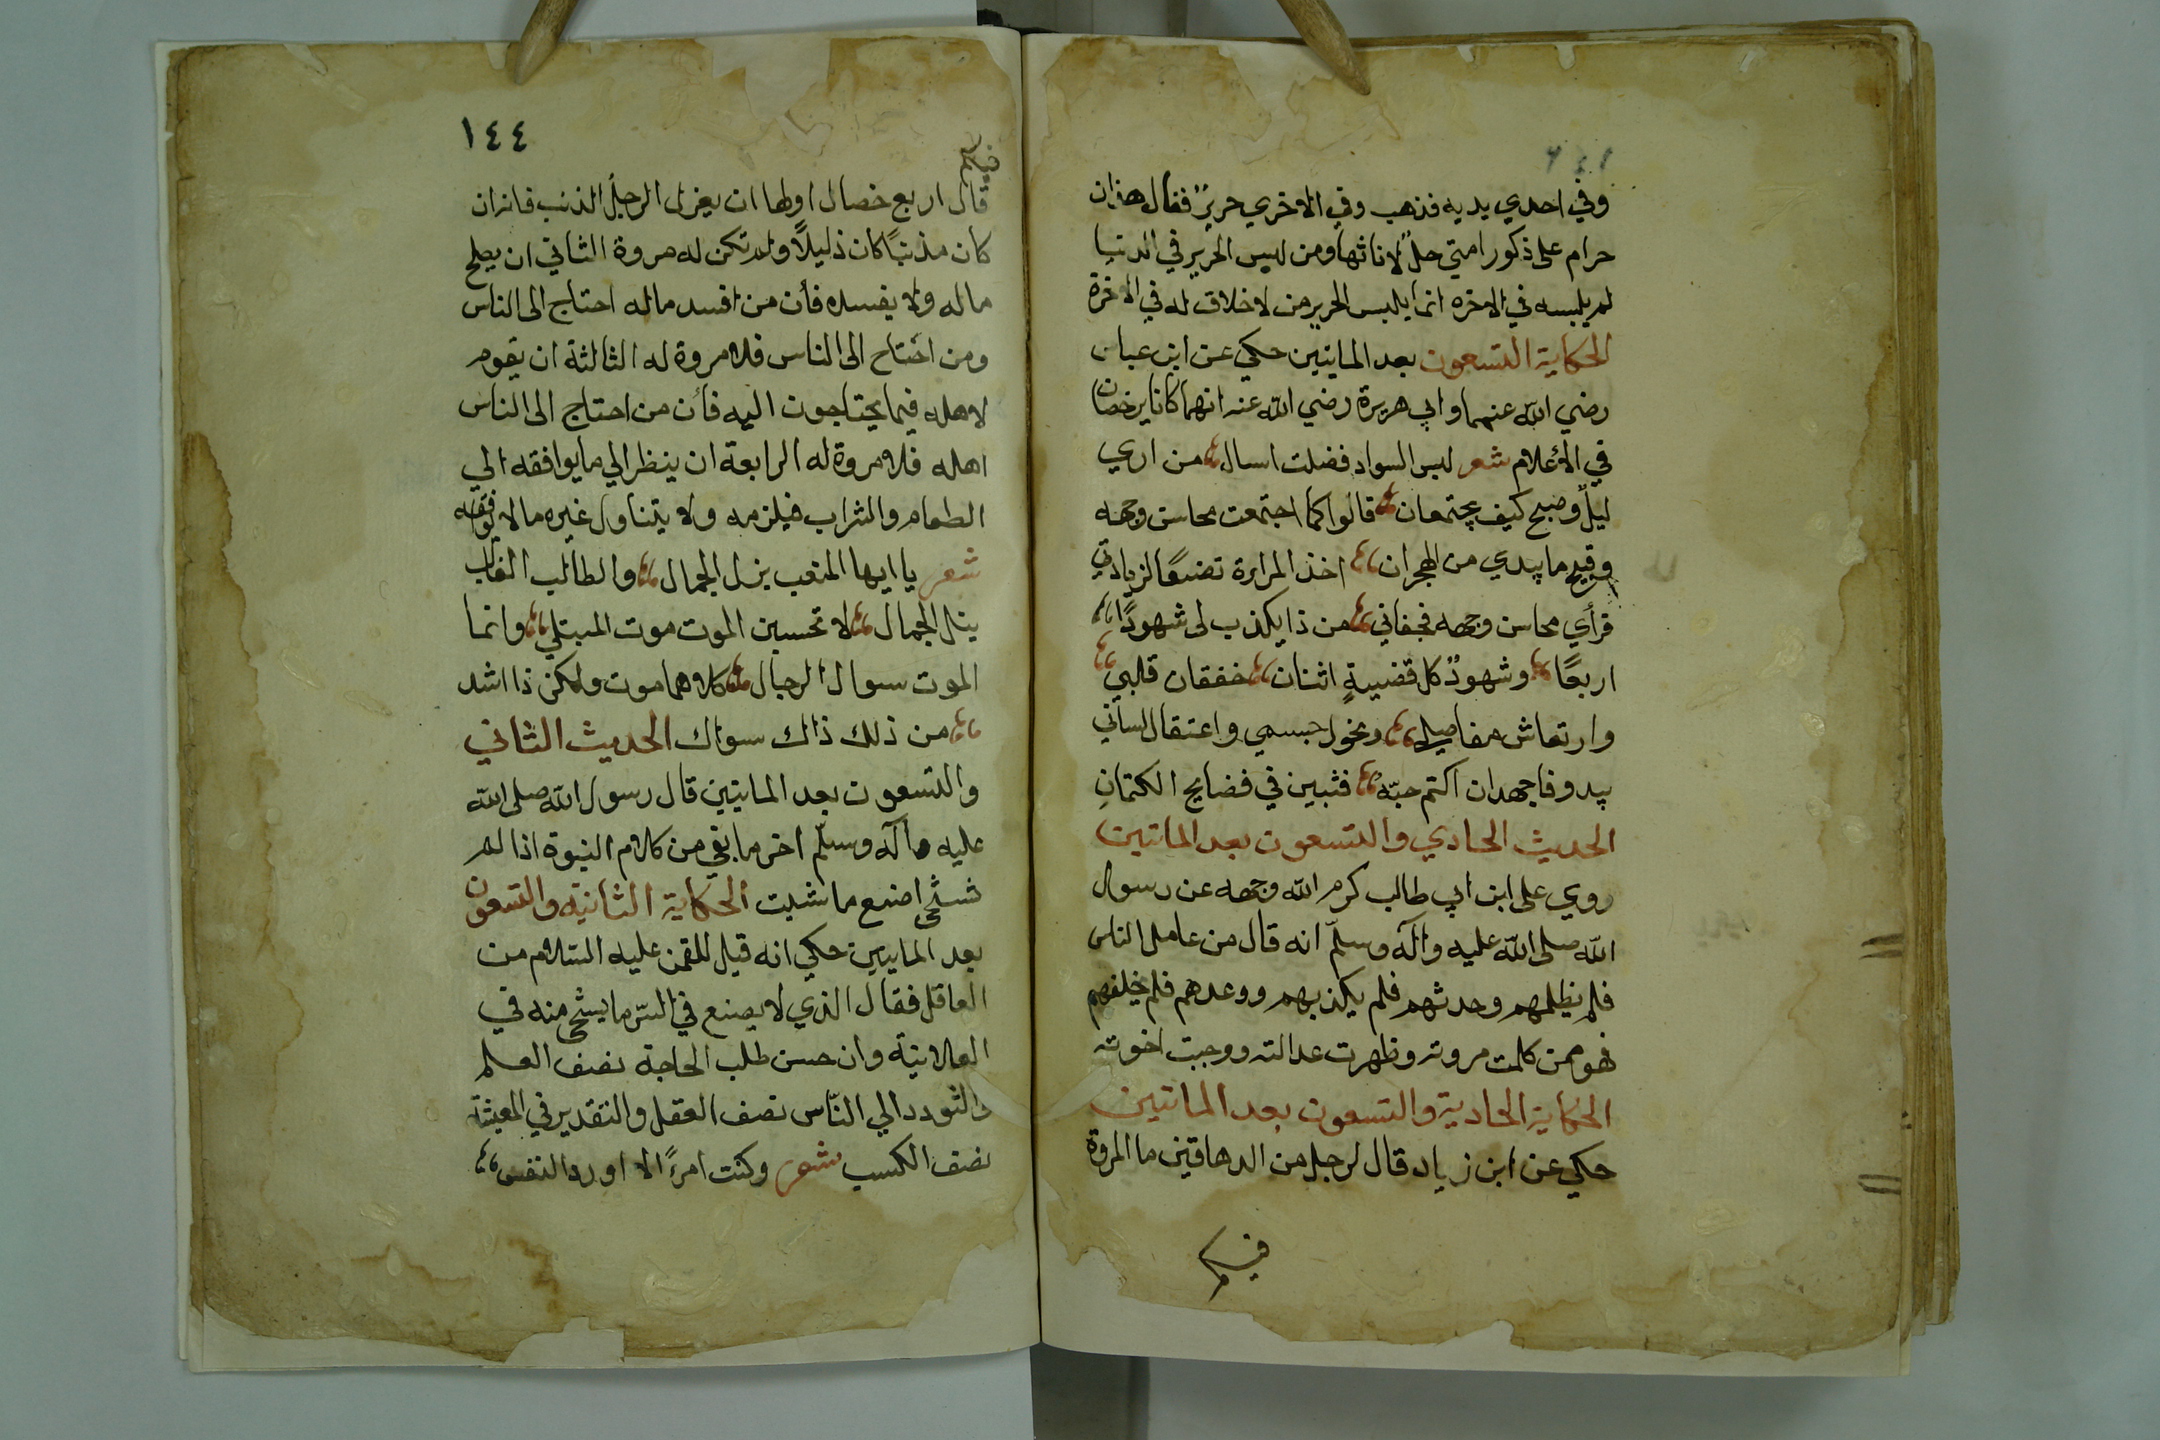 وفي احدي يديه فذهب وفي الاخري حريرٌ فقال هذان
حرام على ذكور امتي حلٌ لاناثها ومن لبس الحرير في الدنيا
لم يلبسه في الاخره انما يلبس الحرير من لاخلاق له في الاخرة
الحكاية التسعون بعد المايتين حكي عن ابن عباس
رضي الله عنهما وابي هريرة رضي الله عنه انهما كانا يرخصان
في الأعلام شعر لبس السواد فضلت اسال من اري
ليلٌ وصبح كيف يجتمعان قالوا كما اجتمعت محاسن وجهه
وقبيح ما يبدي من الهجران اخذ المراءة تضيعًا لزيادتي
فرأي محاسن وجهه فجفاني من ذا يكذب لي شهودًا
اربعًا وشهودٌ كل قضيةٍ اثنان خفقان قلبي
وارتعاش مفاصلي ونحول جسمي واعتقال لساني
يبدو فاجهد ان اكتم حبّه فتبين في فضايح الكتمانِ
الحديث الحادي والتسعون بعد الماتين
روي على ابن ابي طالب كرم الله وجهه عن رسول
الله صلى الله عليه وآله وسلّم انه قال من عامل الناس
فلم يظلمهم وحدثهم فلم يكذبهم ووعدهم فلم يخلفهم
فهو ممن كلمت مروته وظهرت عدالته ووجبت اخوته
الحكاية الحادية والتسعون بعد الماتين
حكي عن ابن زياد قال لرجل من الدهاقين ما المروة
فيكم
١٤٤
فيكم
قال اربع خصال اولها ان يعزل الرجل الذنب فانه ان
كان مذنبًا كان ذليلًا ولم تكن له مروة الثاني ان يصلح
ماله ولا يفسده فأن من افسد ماله احتاج الى الناس
ومن احتاح الى الناس فلا مروة له الثالثة ان يقوم
لاهله فيما يحتاجون اليه فأن من احتاج الى الناس
اهله فلا مروة له الرابعة ان ينظر الي ما يوافقه الي
الطعام والشراب فيلزمه ولا يتناول غيره مالا يوافقه
شعر يا ايها المتعب بزل الجمال والطالب الغالب
ينل الجمال لا تحسبن الموت موت المبتلي وانما
الموت سوال الرجال كلاهما موت ولكن ذا اشد
من ذلك ذاك سواك الحديث الثاني
والتسعون بعد المايتين قال رسول الله صلى الله
عليه وآله وسلّم اخر ما بقي من كلام النبوة اذا لم
تستحي اصنع ما شيت الحكاية الثانية والتسعون
بعد المايتين حكي انه قيل للقمن عليه السّلام من
العاقل فقال الذي لا يصنع في السّر ما يستحي منه في
العلانية وان حسن طلب الحاجة نصف العلم
والتودد الي النّاس نصف العقل والتقدير في المعيشة
نصف الكسب شعر وكنت امرءً الا اورد النفس